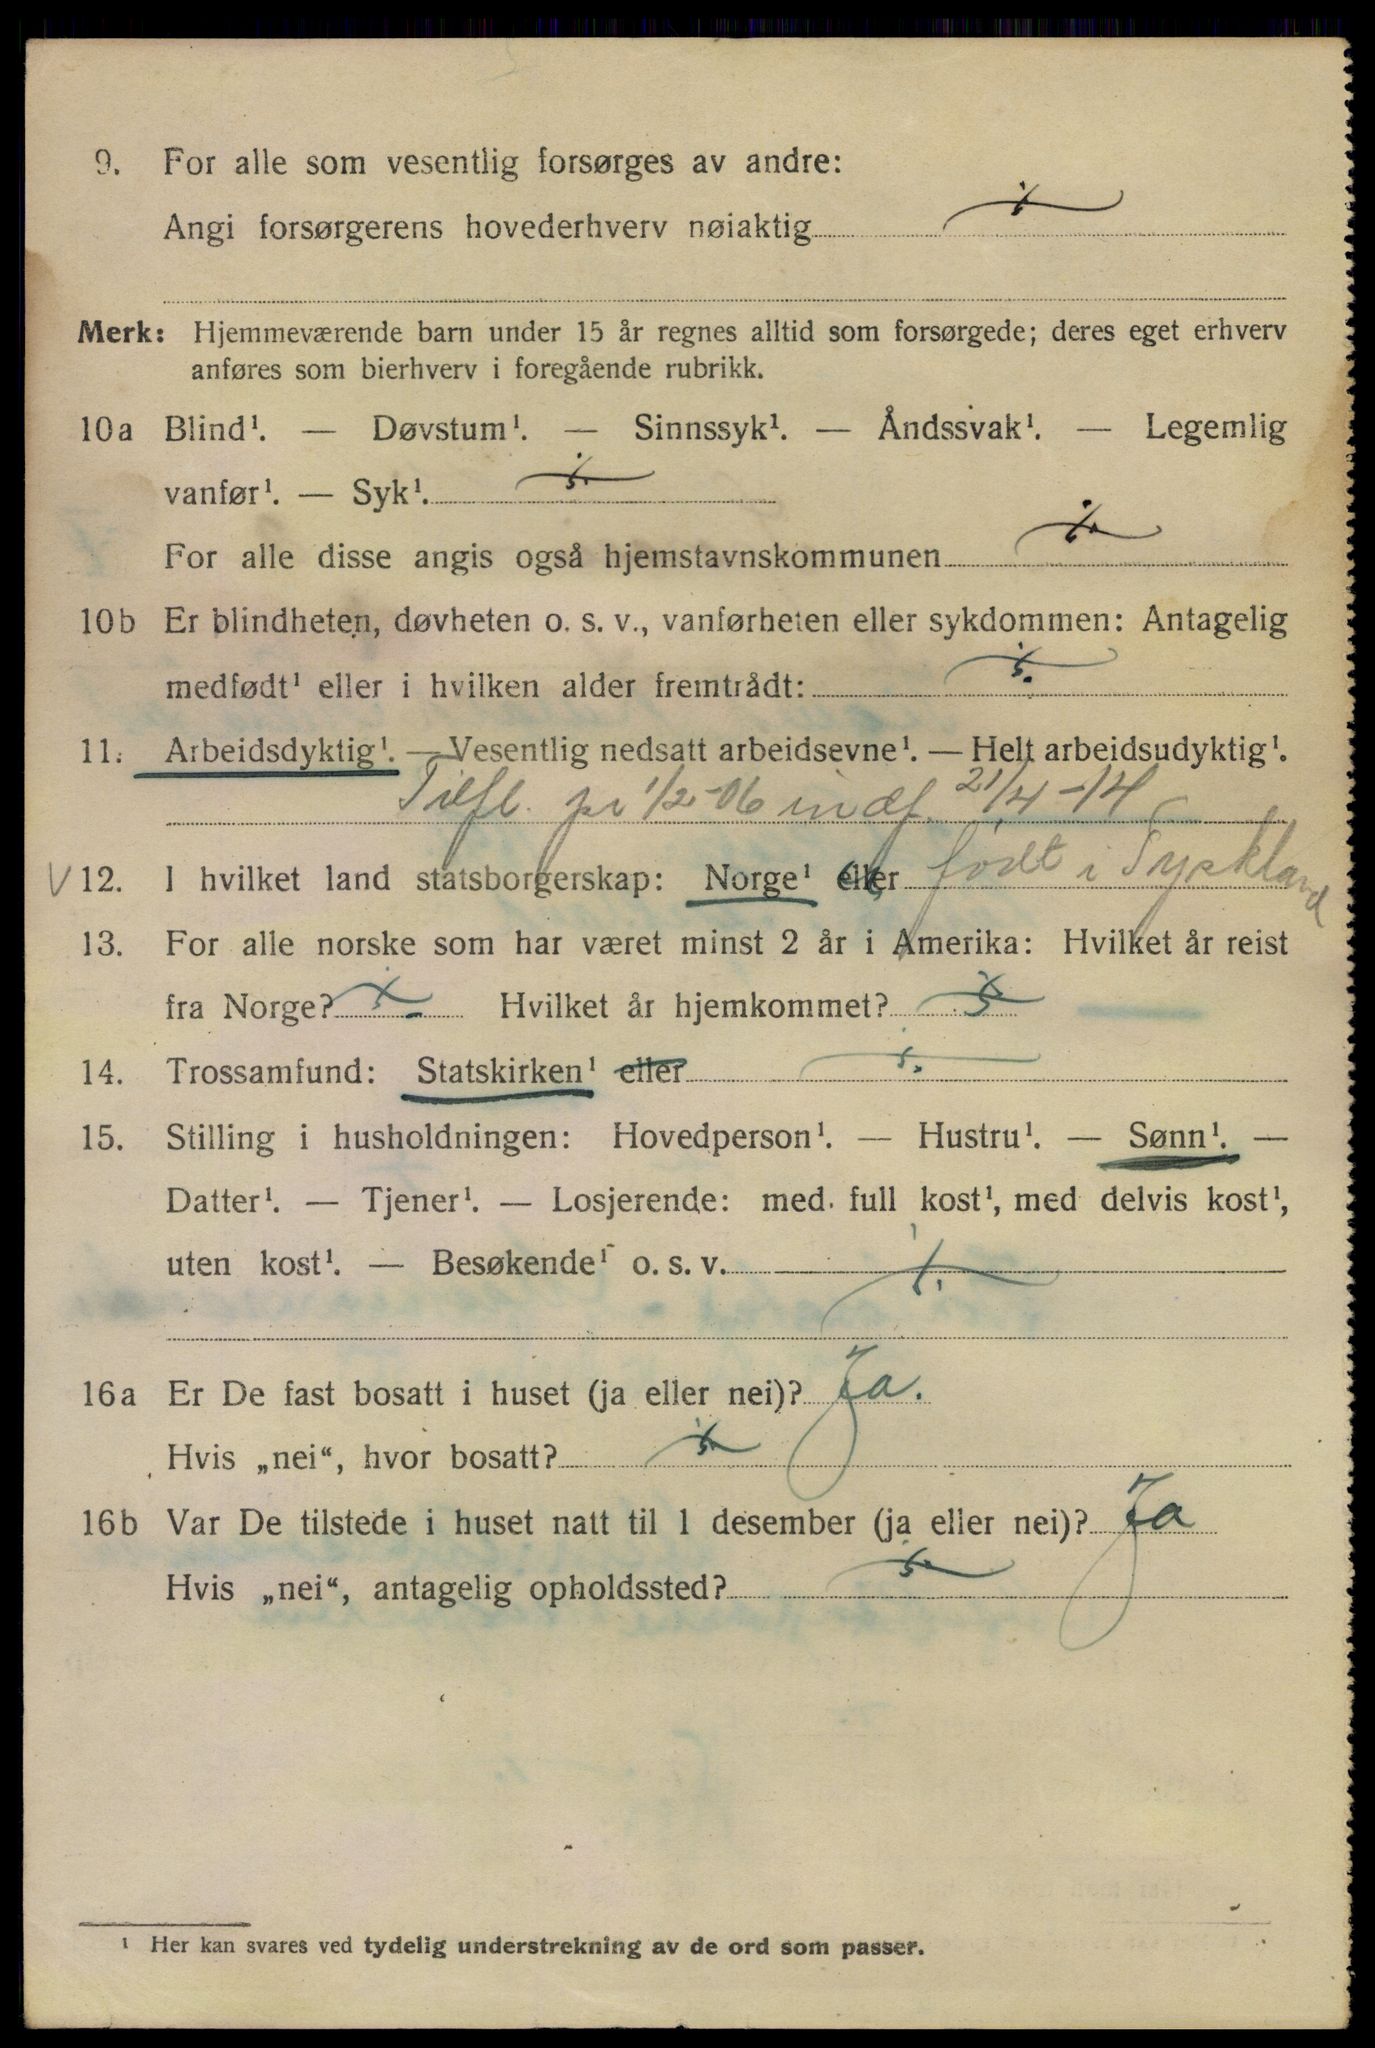 9. For alle som vesentlig forsørges av andre:
Angi forsørgerens hovederhverv nøiaktig
Merk: Hjemmeværende barn under 15 år regnes alltid som forsørgede; deres eget erhverv
anføres som bierhverv i foregående rubrikk.
10a Blind¹. — Døvstum¹. — Sinnssyk¹. — Åndssvak¹. — Legemlig
vanfør¹. — Syk¹.
For alle disse angis også hjemstavnskommunen
10b Er blindheten, døvheten o. s. v., vanførheten eller sykdommen: Antagelig
medfødt¹ eller i hvilken alder fremtrådt:
11. Arbeidsdyktig¹. — Vesentlig nedsatt arbeidsevne¹. — Helt arbeidsudyktig¹.
Tilfl. pr 1/2-06 indf. 21/4-14
V 12. I hvilket land statsborgerskap: Norge¹ eller født i Tyskland
13. For alle norske som har været minst 2 år i Amerika: Hvilket år reist
fra Norge? Hvilket år hjemkommet?
14. Trossamfund: Statskirken¹ eller
15. Stilling i husholdningen: Hovedperson¹. — Hustru¹. — Sønn¹. —
Datter¹. — Tjener¹. — Losjerende: med full kost¹, med delvis kost¹,
uten kost¹. — Besøkende¹ o. s. v.
16a Er De fast bosatt i huset (ja eller nei)? Ja.
Hvis „nei“, hvor bosatt?
16b Var De tilstede i huset natt til 1 desember (ja eller nei)? Ja
Hvis „nei“, antagelig opholdssted?
¹ Her kan svares ved tydelig understrekning av de ord som passer.